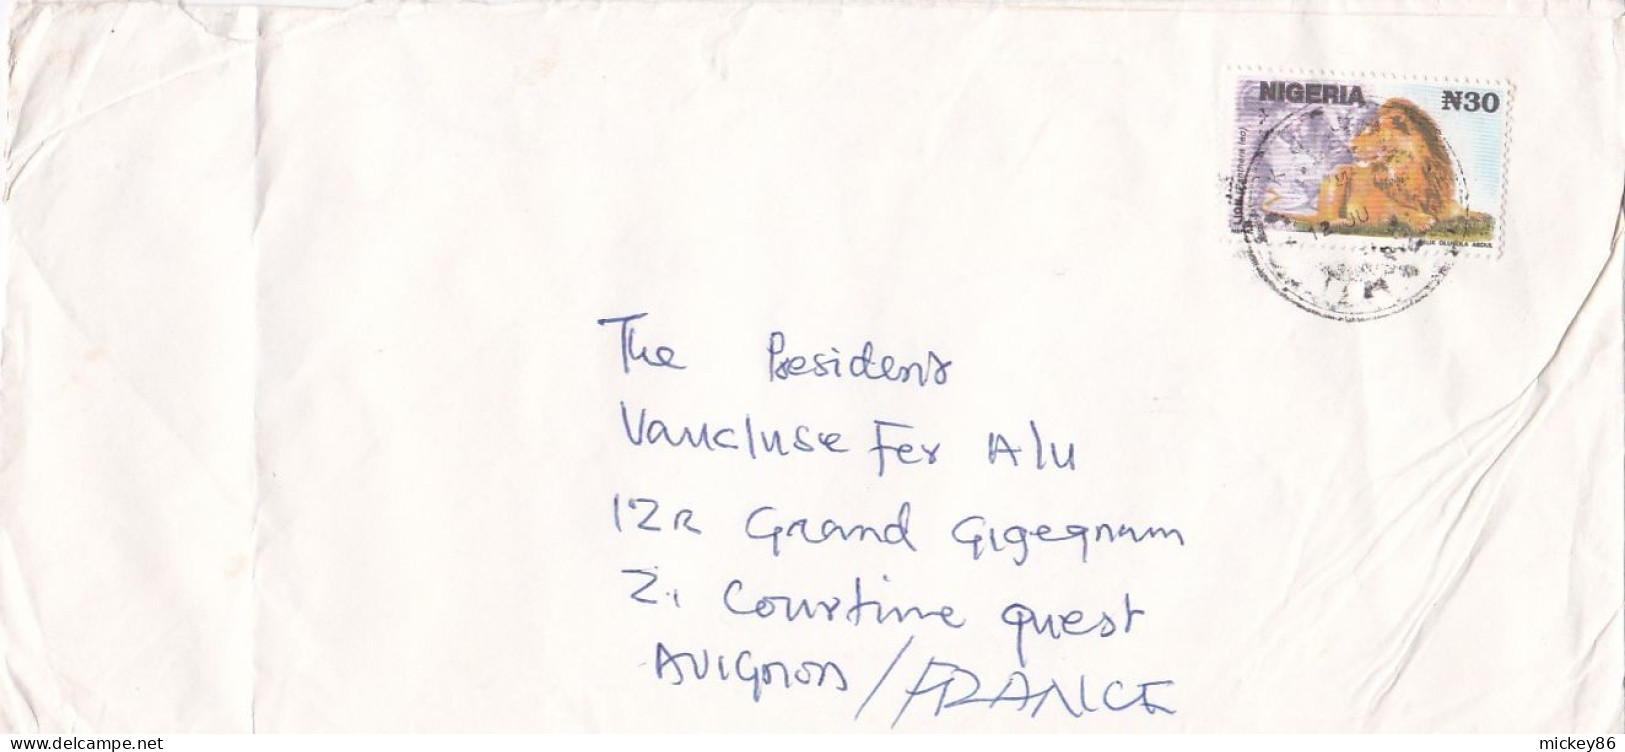 NIGERIA ₦30
LION (Panthera leo)
OLUSOLA ABDUL
12 JU
The President
Vaucluse Fer Alu
12R Grand Gigegnam
Z. Courtine quest
AVIGNON / FRANCE
delcampe.net
mickey86